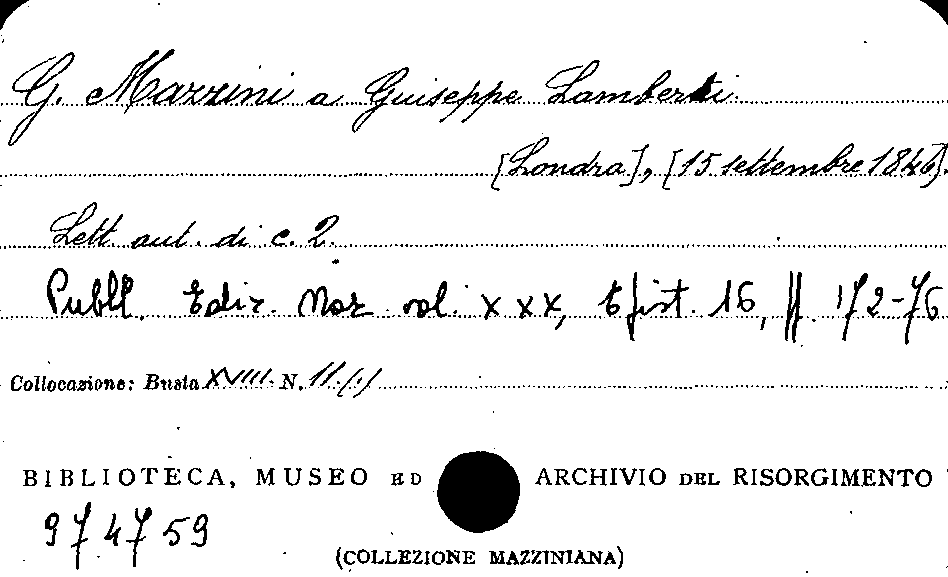 G. Mazzini a Guiseppe Lamberti.
[Londra], [15 settembre 1846].
Lett. aut. di c. 2.
Pubbl. Ediz. Naz. vol. XXX, Epist. 16, pp. 172-76
Collocazione: Busta XVIII. N. 11.(1)
BIBLIOTECA, MUSEO ED ARCHIVIO DEL RISORGIMENTO
974759
(COLLEZIONE MAZZINIANA)